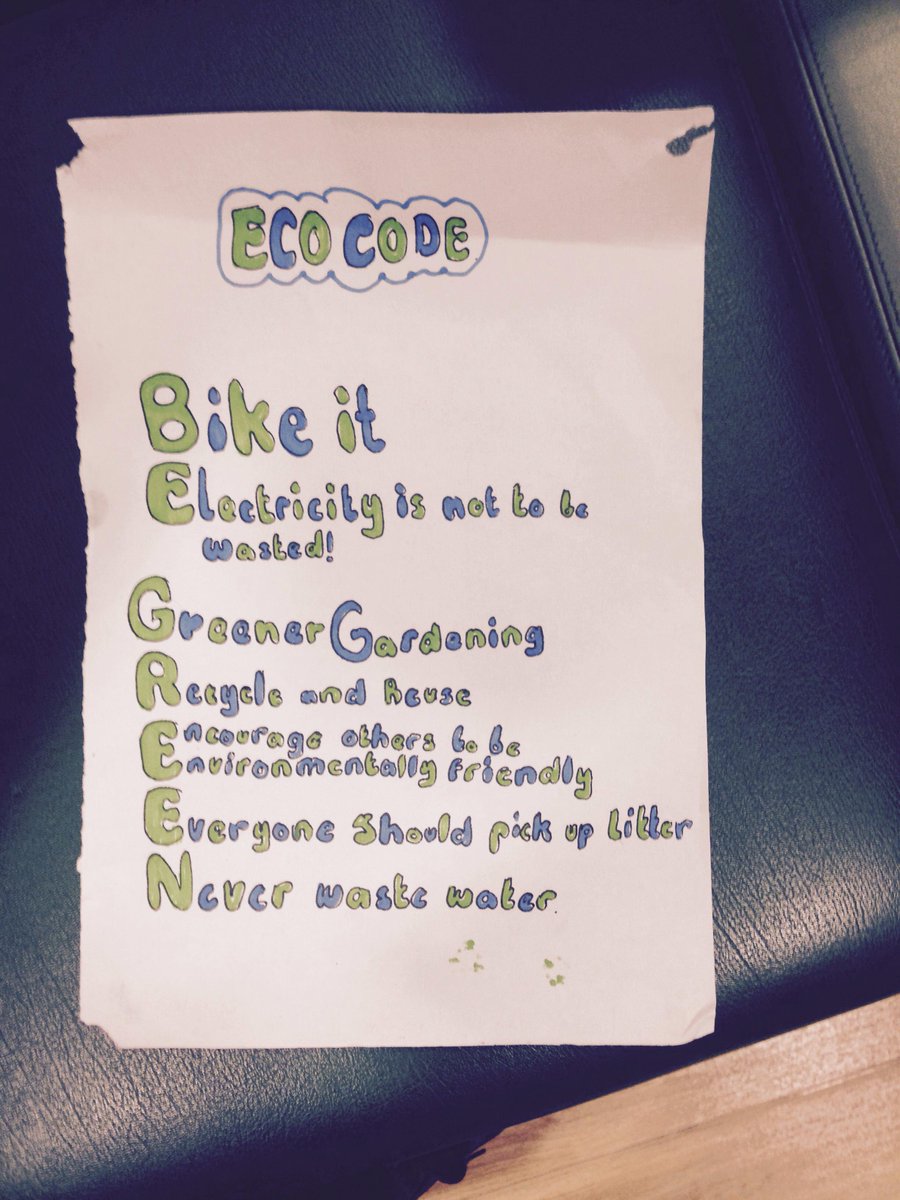 ECO CODE
Bike it
Electricity is not to be
wasted!
Greener Gardening
Recycle and Reuse
Encourage others to be
Environmentally friendly
Everyone Should pick up litter
Never waste water.